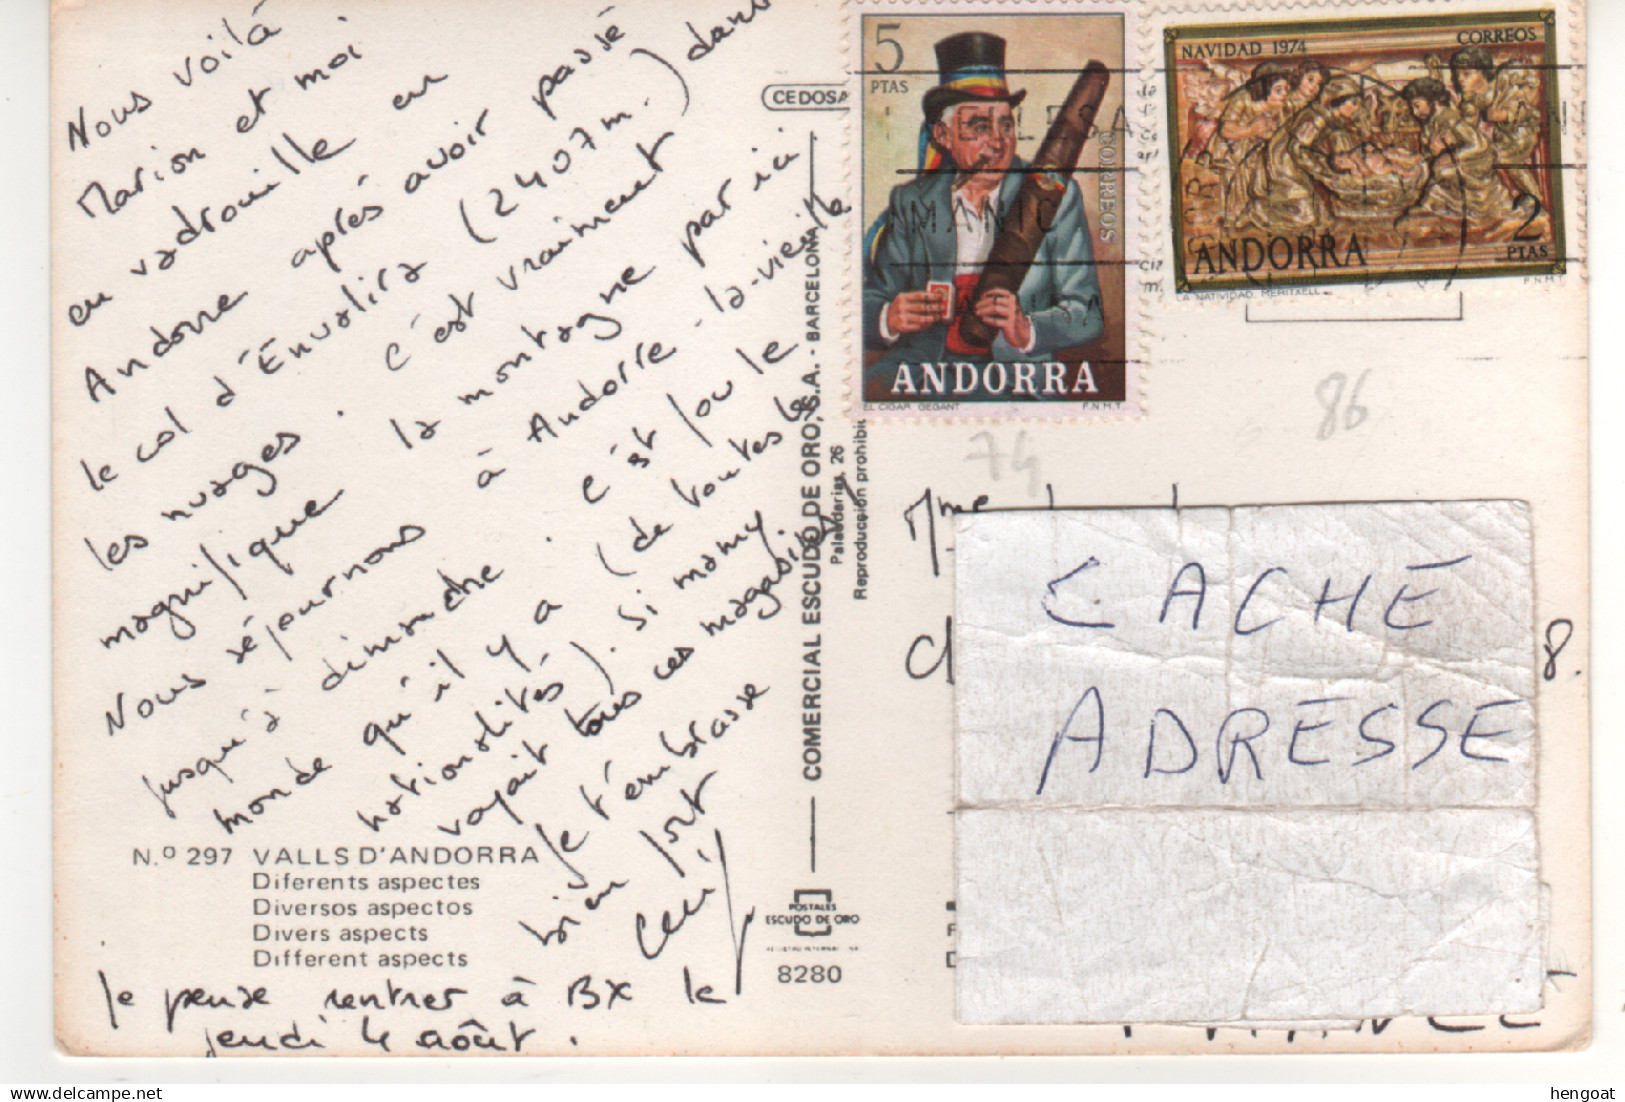 Nous voilà
Marion et moi
en vadrouille en
Andorre après avoir passé
le col d'Envalira (2407m.) dans
les nuages. c'est vraiment
magnifique la montagne par ici
Nous séjournons à Andorre-la-vieille
jusqu'à dimanche. c'est fou le
monde qu'il y a (de toutes les
nationalités). Si mamy
voyait tous ces magasins!
Je t'embrasse
bien fort
Je pense rentrer à BX le
jeudi 4 août.
N.º 297 VALLS D'ANDORRA
Diferents aspectes
Diversos aspectos
Divers aspects
Different aspects
CEDOSA
COMERCIAL ESCUDO DE ORO, S.A. - BARCELONA
Palaudarias, 26
Reproducción prohibi
POSTALES
ESCUDO DE ORO
8280
5
PTAS
CORREOS
ANDORRA
EL CIGAR GEGANT F.N.M.T.
NAVIDAD 1974 CORREOS
2
PTAS
ANDORRA
LA NATIVIDAD. MERITXELL F.N.M.T.
74
86
Mme
8.
CACHÉ
ADRESSE
FRANCE
hengoat